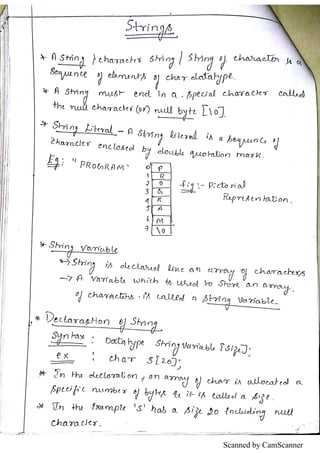 Strings
* A string / character string / string of characters is a
sequence of elements of char datatype.
* A string must end in a special character called
the null character (or) null byte [\0].
* String Literal - A string literal is a sequence of
character enclosed by double quotation mark.
Eg: "PROGRAM"
0 P
1 R
2 O
3 G
4 R
5 A
6 M
7 \0
fig :- Pictorial
Representation.
* String Variable
→ String is declared like an array of characters
→ A variable which is used to store an array
of characters is called a string variable.
* Declaration of String
Syntax : Datatype StringVariable [Size];
ex : char S[20];
* In the declaration, an array of char is allocated a
specific number of bytes ie it is called a size.
* In the Example 'S' has a size 20 including null
character.
Scanned by CamScanner